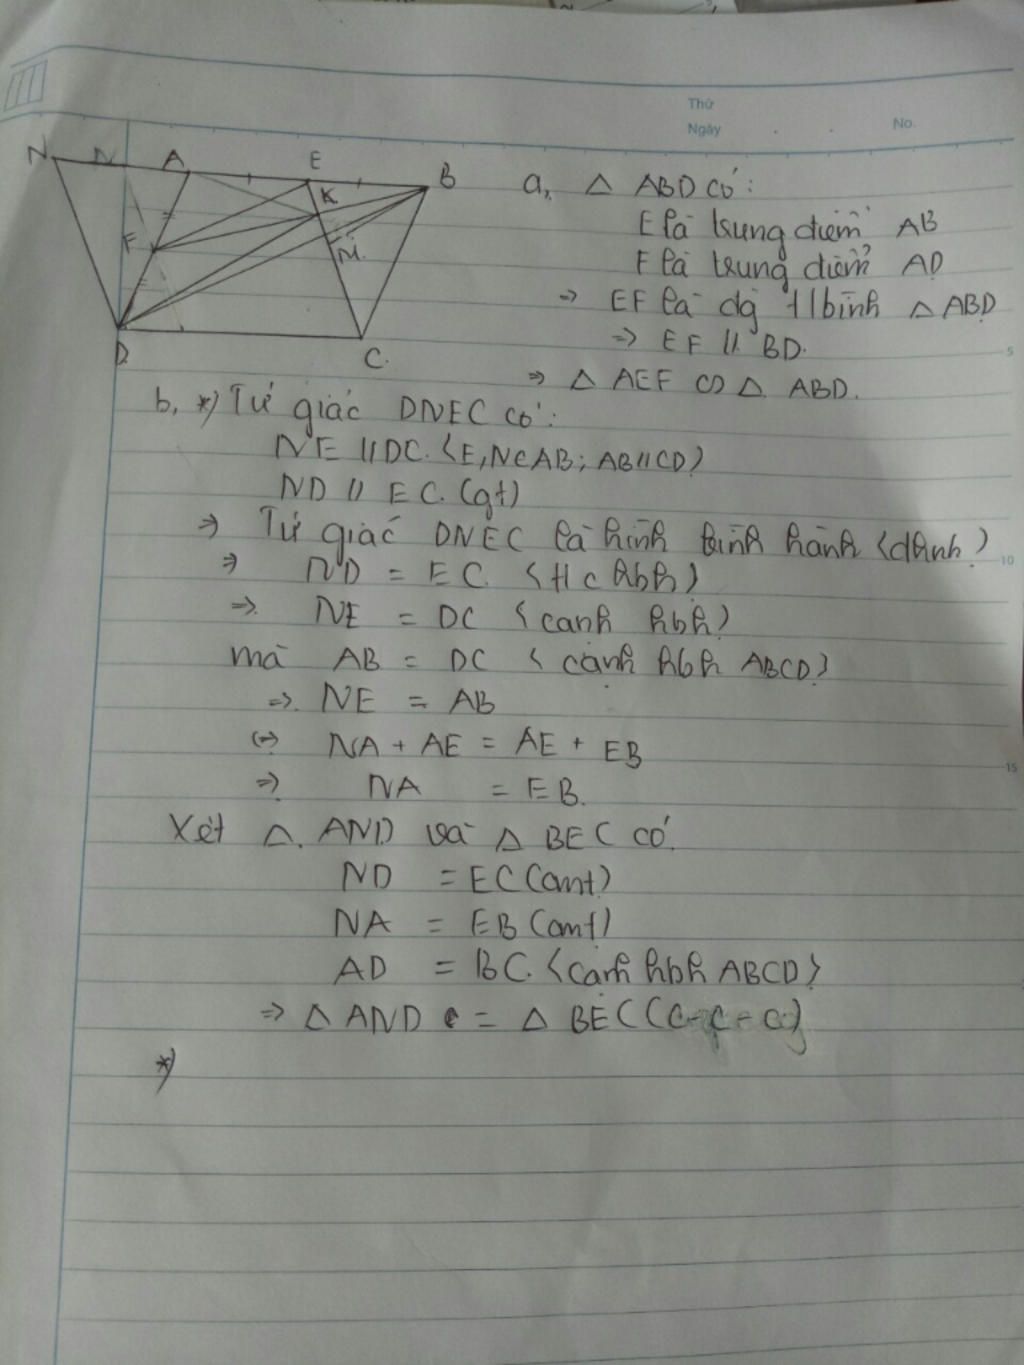 Thứ
Ngày
No.
N N A E B
K
F M
D C
a, △ ABD có:
E là trung điểm AB
F là trung điểm AD
=> EF là đg t/bình △ ABD
=> EF // BD.
=> △ AEF ∽ △ ABD.
5
b, *) Tứ giác DNEC có:
NE // DC. (E, N∈AB; AB//CD)
ND // EC. (gt)
=> Tứ giác DNEC là hình bình hành (dhnb)
10
=> ND = EC. (t/c hbh)
=> NE = DC (cạnh hbh)
mà AB = DC (cạnh hbh ABCD)
=> NE = AB
(=) NA + AE = AE + EB
15
=> NA = EB.
Xét △ AND và △ BEC có
ND = EC (cmt)
NA = EB (cmt)
AD = BC. (cạnh hbh ABCD)
=> △ AND = △ BEC (c-c-c)
*)